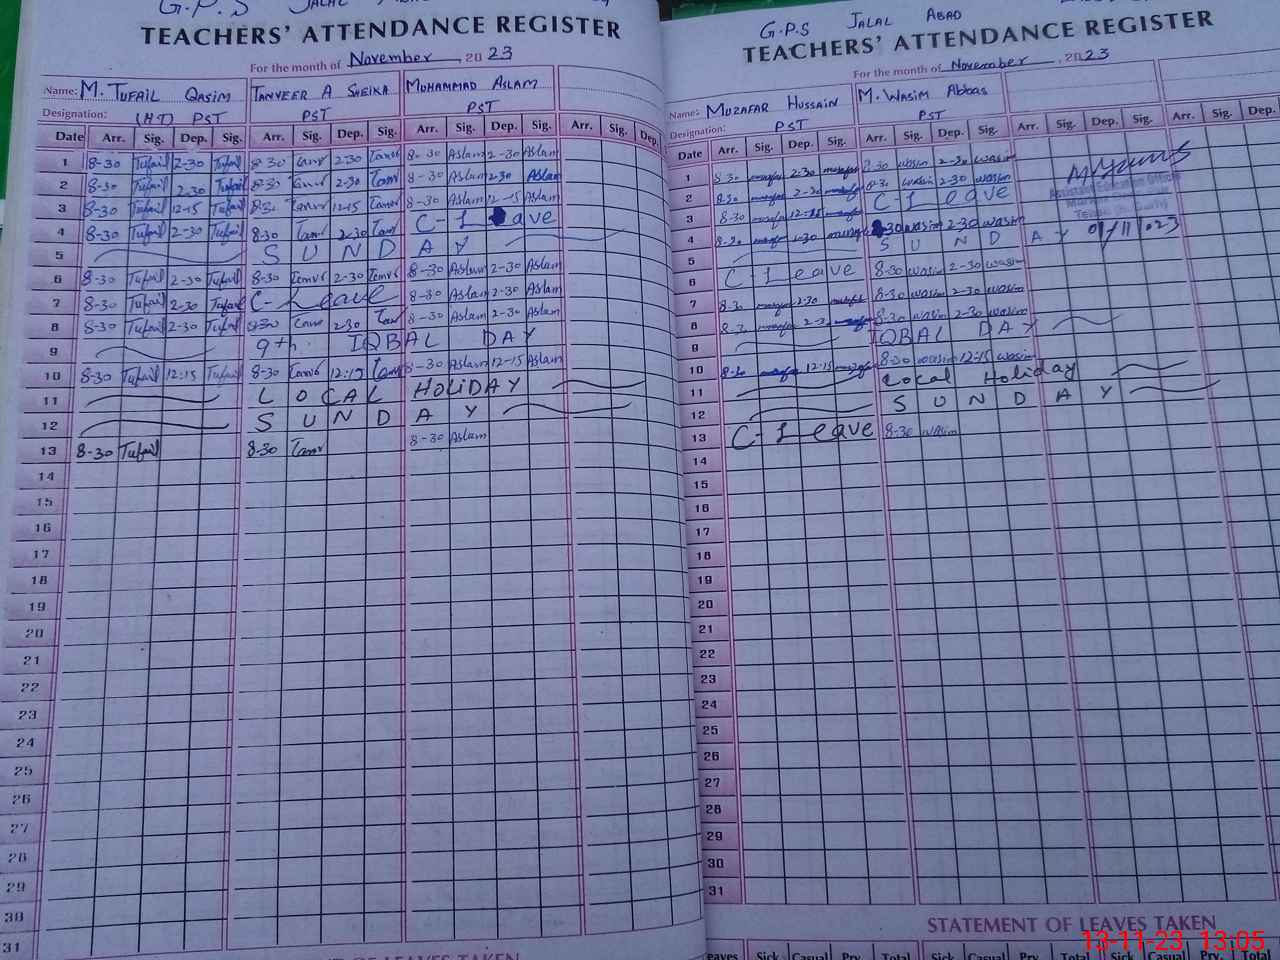 G.P.S JALAL
TEACHERS' ATTENDANCE REGISTER
For the month of November 2023
Name: M. TUFAIL QASIM TANVEER A SHEIKA MUHAMMAD ASLAM
Designation: (HT) PST PST PST
Date Arr. Sig. Dep. Sig. Arr. Sig. Dep. Sig. Arr. Sig. Dep. Sig. Arr. Sig. Dep.
1 8-30 Tufail 2-30 Tufail 8-30 Tanvr 2-30 Tanvr 8-30 Aslam 2-30 Aslam
2 8-30 Tufail 2-30 Tufail 8-30 Tanvr 2-30 Tanvr 8-30 Aslam 2-30 Aslam
3 8-30 Tufail 12-15 Tufail 8-30 Tanvr 12-15 Tanvr 8-30 Aslam 12-15 Aslam
4 8-30 Tufail 2-30 Tufail 8-30 Tanvr 2-30 Tanvr C-Leave
5 SUNDAY
6 8-30 Tufail 2-30 Tufail 8-30 Tanvr 2-30 Tanvr 8-30 Aslam 2-30 Aslam
7 8-30 Tufail 2-30 Tufail C-Leave 8-30 Aslam 2-30 Aslam
8 8-30 Tufail 2-30 Tufail 8-30 Tanvr 2-30 Tanvr 8-30 Aslam 2-30 Aslam
9 9th. IQBAL DAY
10 8-30 Tufail 12-15 Tufail 8-30 Tanvr 12-15 Tanvr 8-30 Aslam 12-15 Aslam
11 LOCAL HOLIDAY
12 SUNDAY
13 8-30 Tufail 8-30 Tanvr 8-30 Aslam
14
15
16
17
18
19
20
21
22
23
24
25
26
27
28
29
30
31
OF LEAVES TAKEN
G.P.S JALAL ABAD
TEACHERS' ATTENDANCE REGISTER
For the month of November, 2023
Name: MUZAFAR HUSSAIN M. WASIM Abbas
Designation: PST PST
Date Arr. Sig. Dep. Sig. Arr. Sig. Dep. Sig. Arr. Sig. Dep. Sig. Arr. Sig.
1 8-30 2-30 8-30 wasim 2-30 wasim
2 8-30 2-30 8-30 wasim 2-30 wasim
Assistant Education Officer
3 8-30 12-15 C-Leave
4 8-30 2-30 8-30 wasim 2-30 wasim 01/11/023
5 SUNDAY
6 C-Leave 8-30 wasim 2-30 wasim
7 8-30 2-30 8-30 wasim 2-30 wasim
8 8-30 2-30 8-30 wasim 2-30 wasim
9 IQBAL DAY
10 8-30 12-15 8-30 wasim 12-15 wasim
11 Local Holiday
12 SUNDAY
13 C-Leave 8-30 wasim
14
15
16
17
18
19
20
21
22
23
24
25
26
27
28
29
30
31
STATEMENT OF LEAVES TAKEN
Leaves Sick Casual Prv. Total Sick Casual Prv. Total
13-11-23 13:05